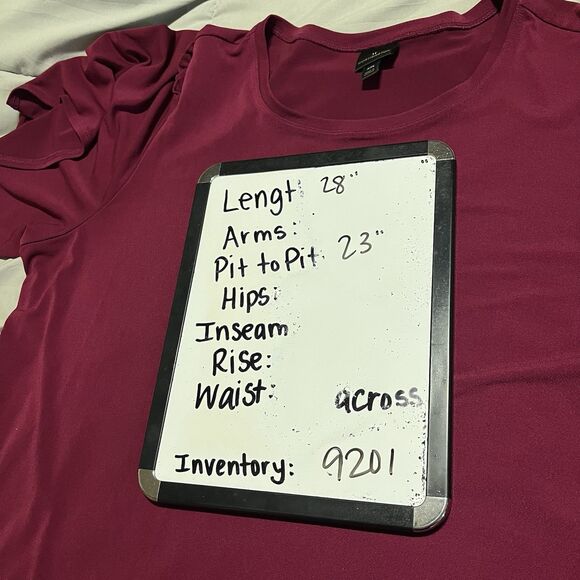 Lengt: 28"
Arms:
Pit to Pit: 23"
Hips:
Inseam
Rise:
Waist: across
Inventory: 9201